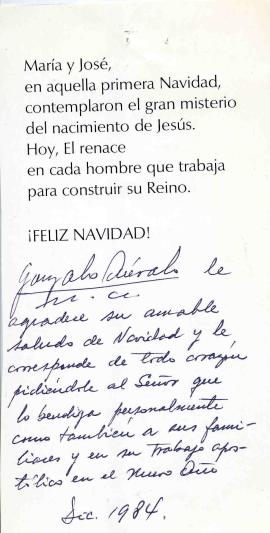 María y José,
en aquella primera Navidad,
contemplaron el gran misterio
del nacimiento de Jesús.
Hoy, El renace
en cada hombre que trabaja
para construir su Reino.
¡FELIZ NAVIDAD!
Gonzalo Arévalo le
agradece su amable
saludo de Navidad y le
corresponde de todo corazón
pidiéndole al Señor que
lo bendiga personalmente
como también a sus fami-
liares y en su trabajo apos-
tólico en el Nuevo Año
Dic. 1984.